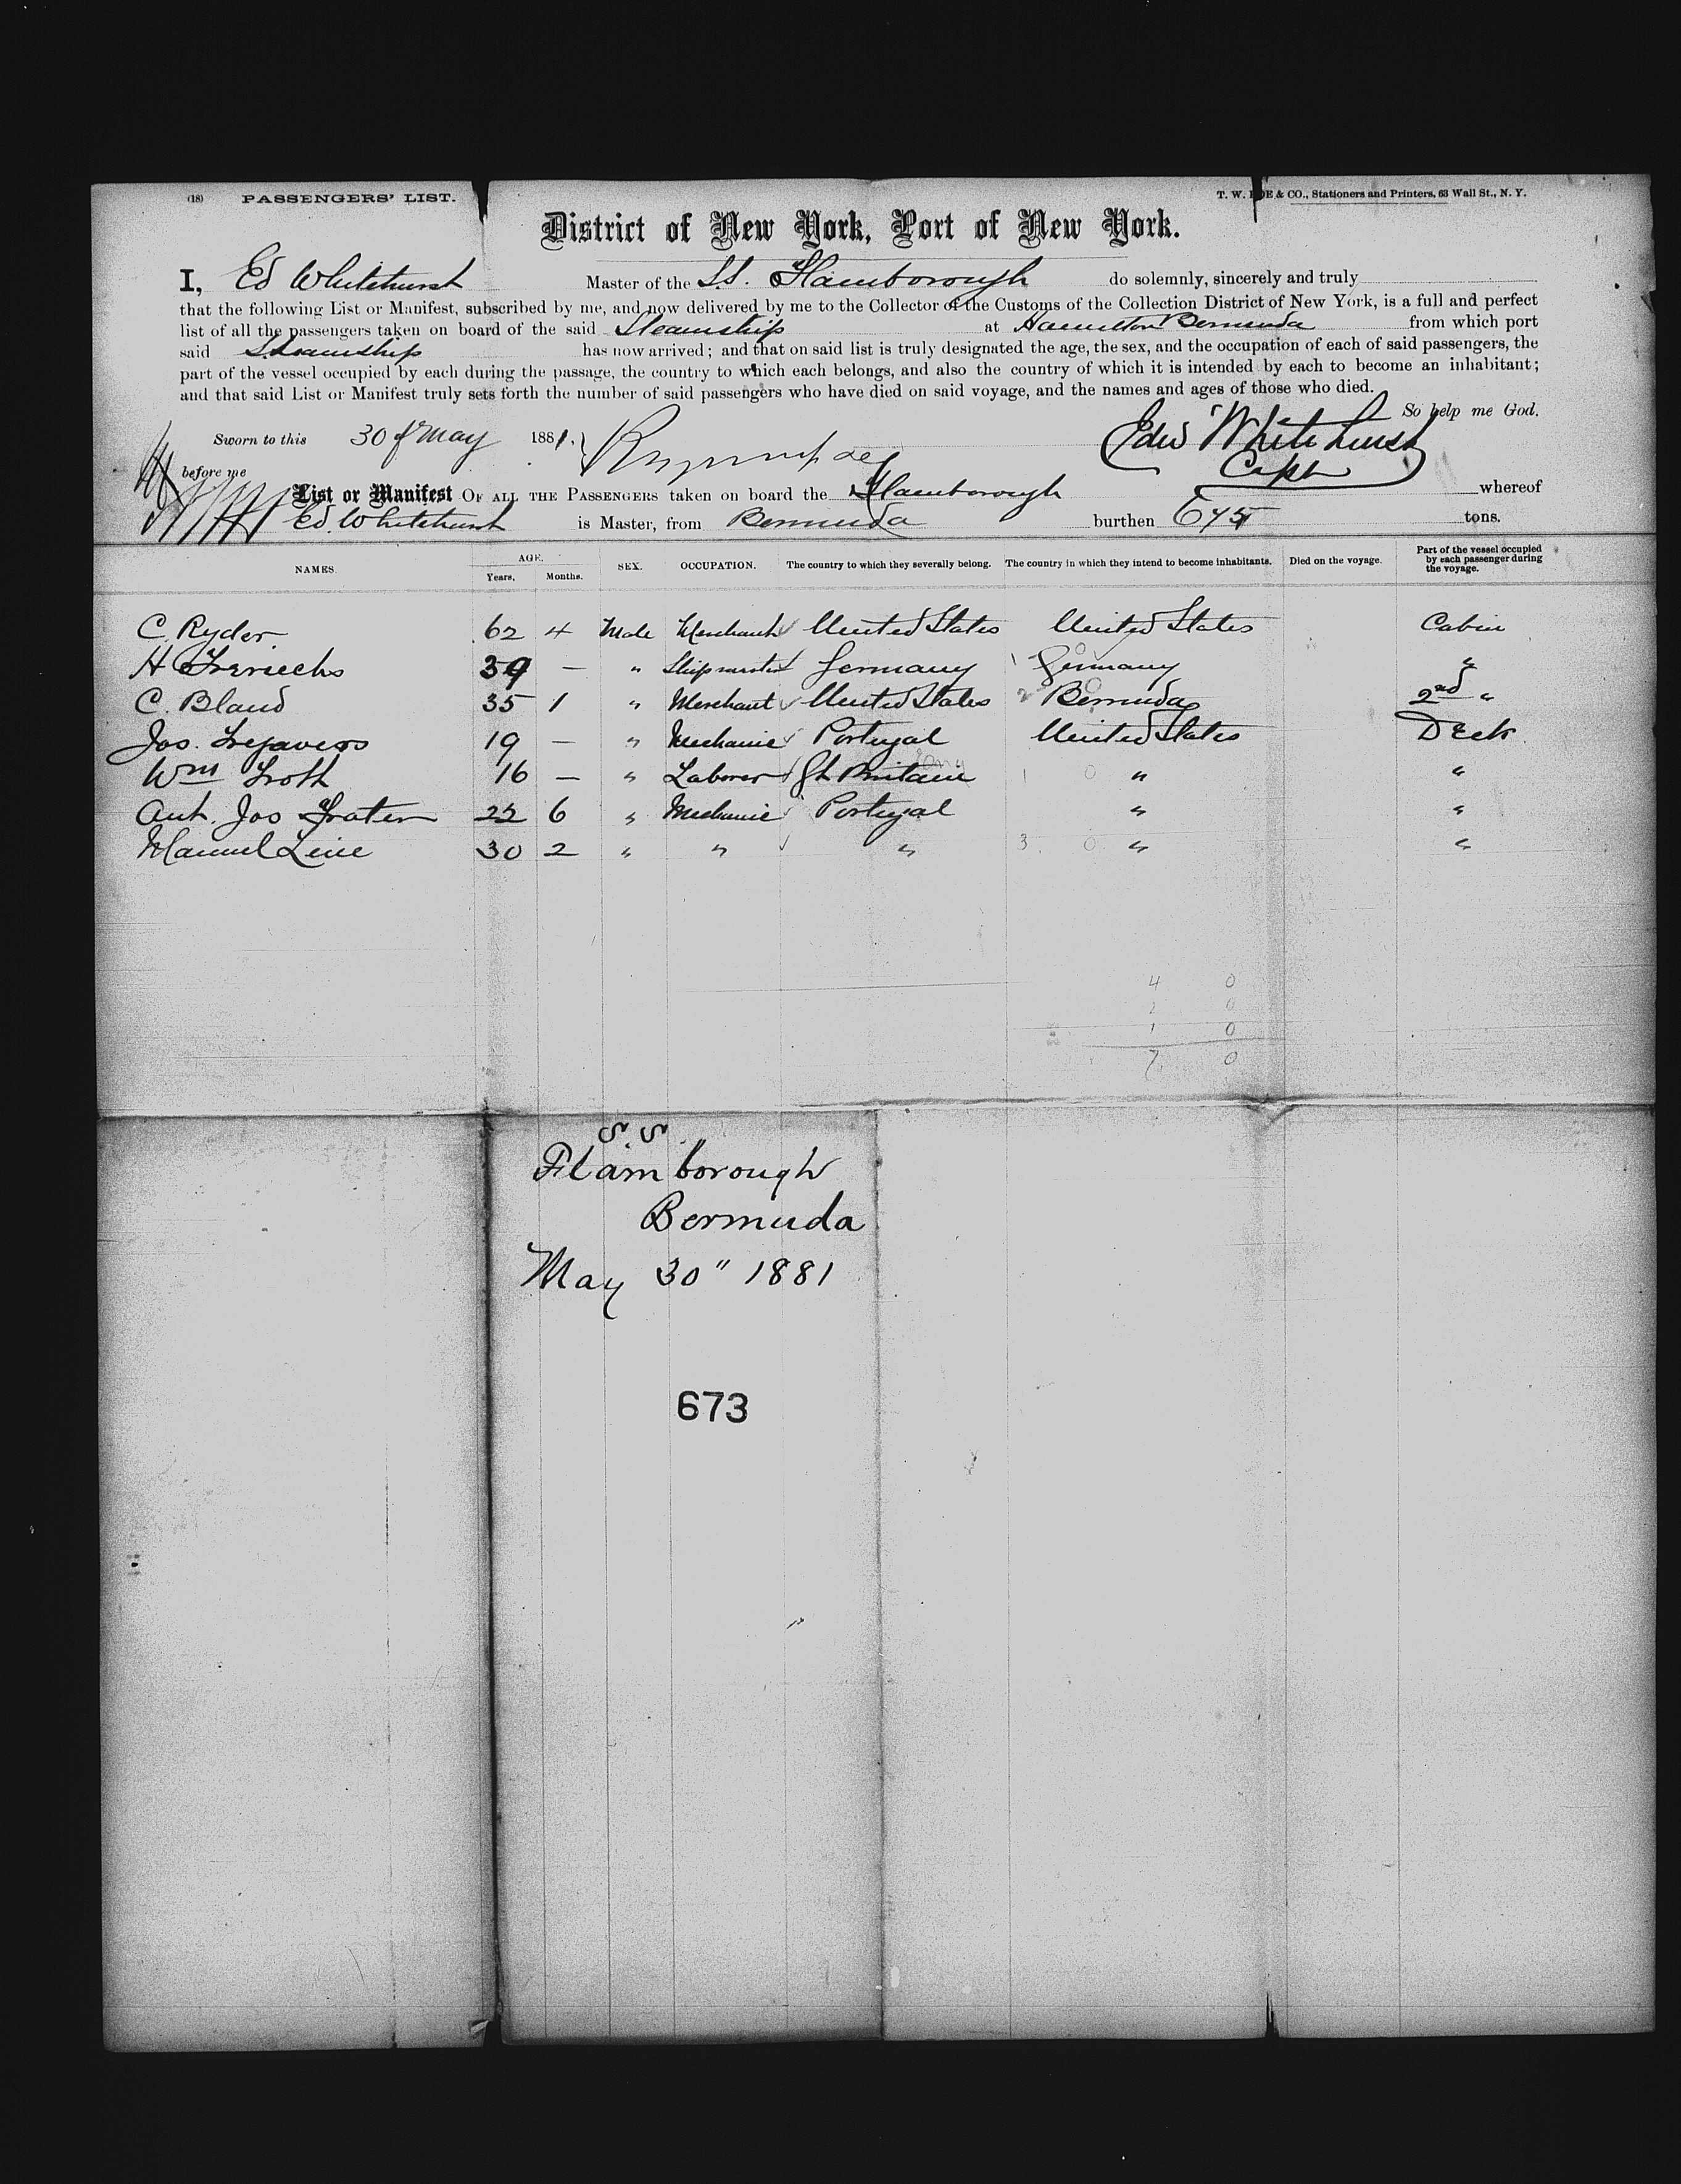 (18) PASSENGERS' LIST.
T. W. & CO., Stationers and Printers, 63 Wall St., N. Y.
District of New York, Port of New York.
I, Ed Whitehurst Master of the S.S. Flamborough do solemnly, sincerely and truly
that the following List or Manifest, subscribed by me, and now delivered by me to the Collector of the Customs of the Collection District of New York, is a full and perfect
list of all the passengers taken on board of the said Steamship at Hamilton Bermuda from which port
said Steamship has now arrived; and that on said list is truly designated the age, the sex, and the occupation of each of said passengers, the
part of the vessel occupied by each during the passage, the country to which each belongs, and also the country of which it is intended by each to become an inhabitant;
and that said List or Manifest truly sets forth the number of said passengers who have died on said voyage, and the names and ages of those who died.
So help me God.
Sworn to this 30 of May 1881. Edw Whitehurst
before me Capt
List or Manifest OF ALL THE PASSENGERS taken on board the Flamborough whereof
Ed. Whitehurst is Master, from Bermuda burthen 675 tons.
NAMES. AGE. Years. Months. SEX. OCCUPATION. The country to which they severally belong. The country in which they intend to become inhabitants. Died on the voyage. Part of the vessel occupied by each passenger during the voyage.
C. Ryder 62 4 Male Merchant United States United States Cabin
H 39 — " Shipmaster Germany 1 0 Germany "
C. Bland 35 1 " Merchant United States 2 0 Bermuda 2nd "
Jos. 19 — " Mechanic Portugal United States Deck
Wm Froth 16 — " Laborer Gt Britain 1 0 " "
Ant. Jos Frater 22 6 " Mechanic Portugal " "
Manuel 30 2 " " " 3 0 " "
4 0
2 0
1 0
7 0
S.S.
Flamborough
Bermuda
May 30" 1881
673